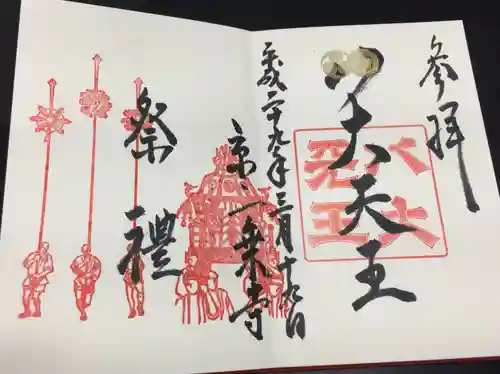 参拝
八大天王
八大
天王
平成二十九年三月十九日
京一乗寺
祭禮